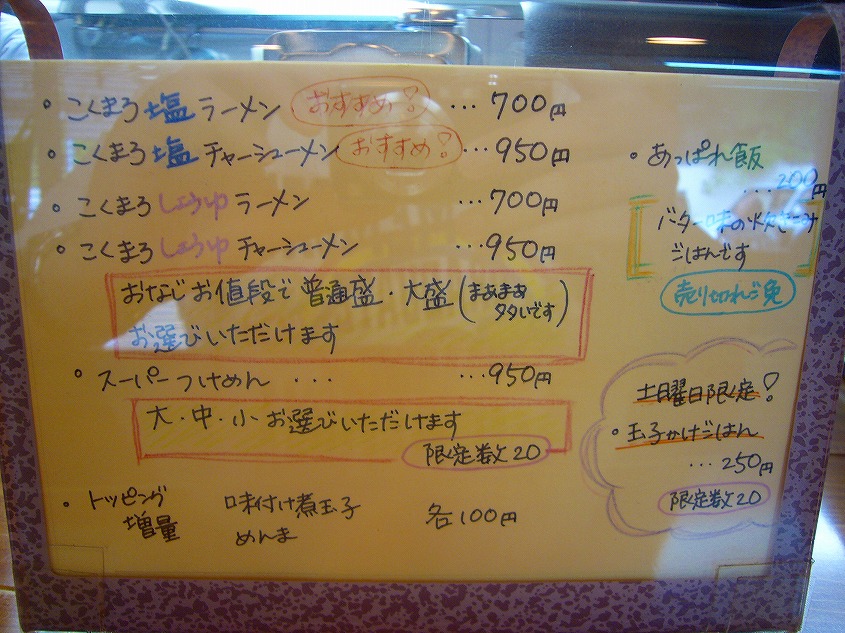 。こくまろ塩ラーメン おすすめ! ... 700円
。こくまろ塩チャーシューメン おすすめ! ... 950円
。こくまろしょうゆラーメン ... 700円
。こくまろしょうゆチャーシューメン ... 950円
おなじお値段で普通盛・大盛(まあまあ
タタいです)
お選びいただけます
。スーパーつけめん ... ... 950円
大・中・小お選びいただけます
限定数20
。トッピング 味付け煮玉子 各100円
増量 めんま
。あっぱれ飯
... 200円
バター味の炊きこみ
ごはんです
売り切れご免
土日曜日限定!
。玉子かけごはん
... 250円
限定数20